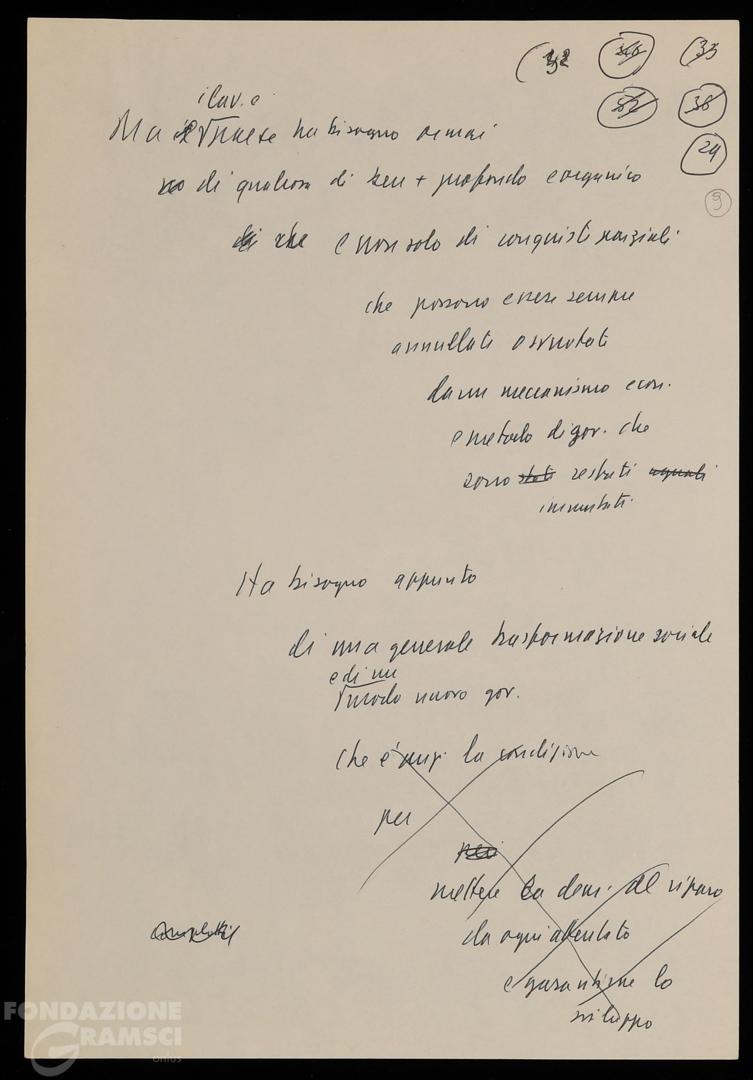 32 33
38
24
9
i lav. e
Ma il Paese ha bisogno ormai
di qualcosa di ben + profondo e organico
e non solo di conquiste parziali
che possono essere sempre
annullate o svuotate
da un meccanismo econ.
e metodo di gov. che
sono stati restati uguali
immutati.
Ha bisogno appunto
di una generale trasformazione sociale
e di un
modo nuovo gov.
che è anzi la condizione
per
per
mettere la dem. al riparo
da ogni attentato
e garantirne lo
sviluppo
FONDAZIONE
GRAMSCI
onlus